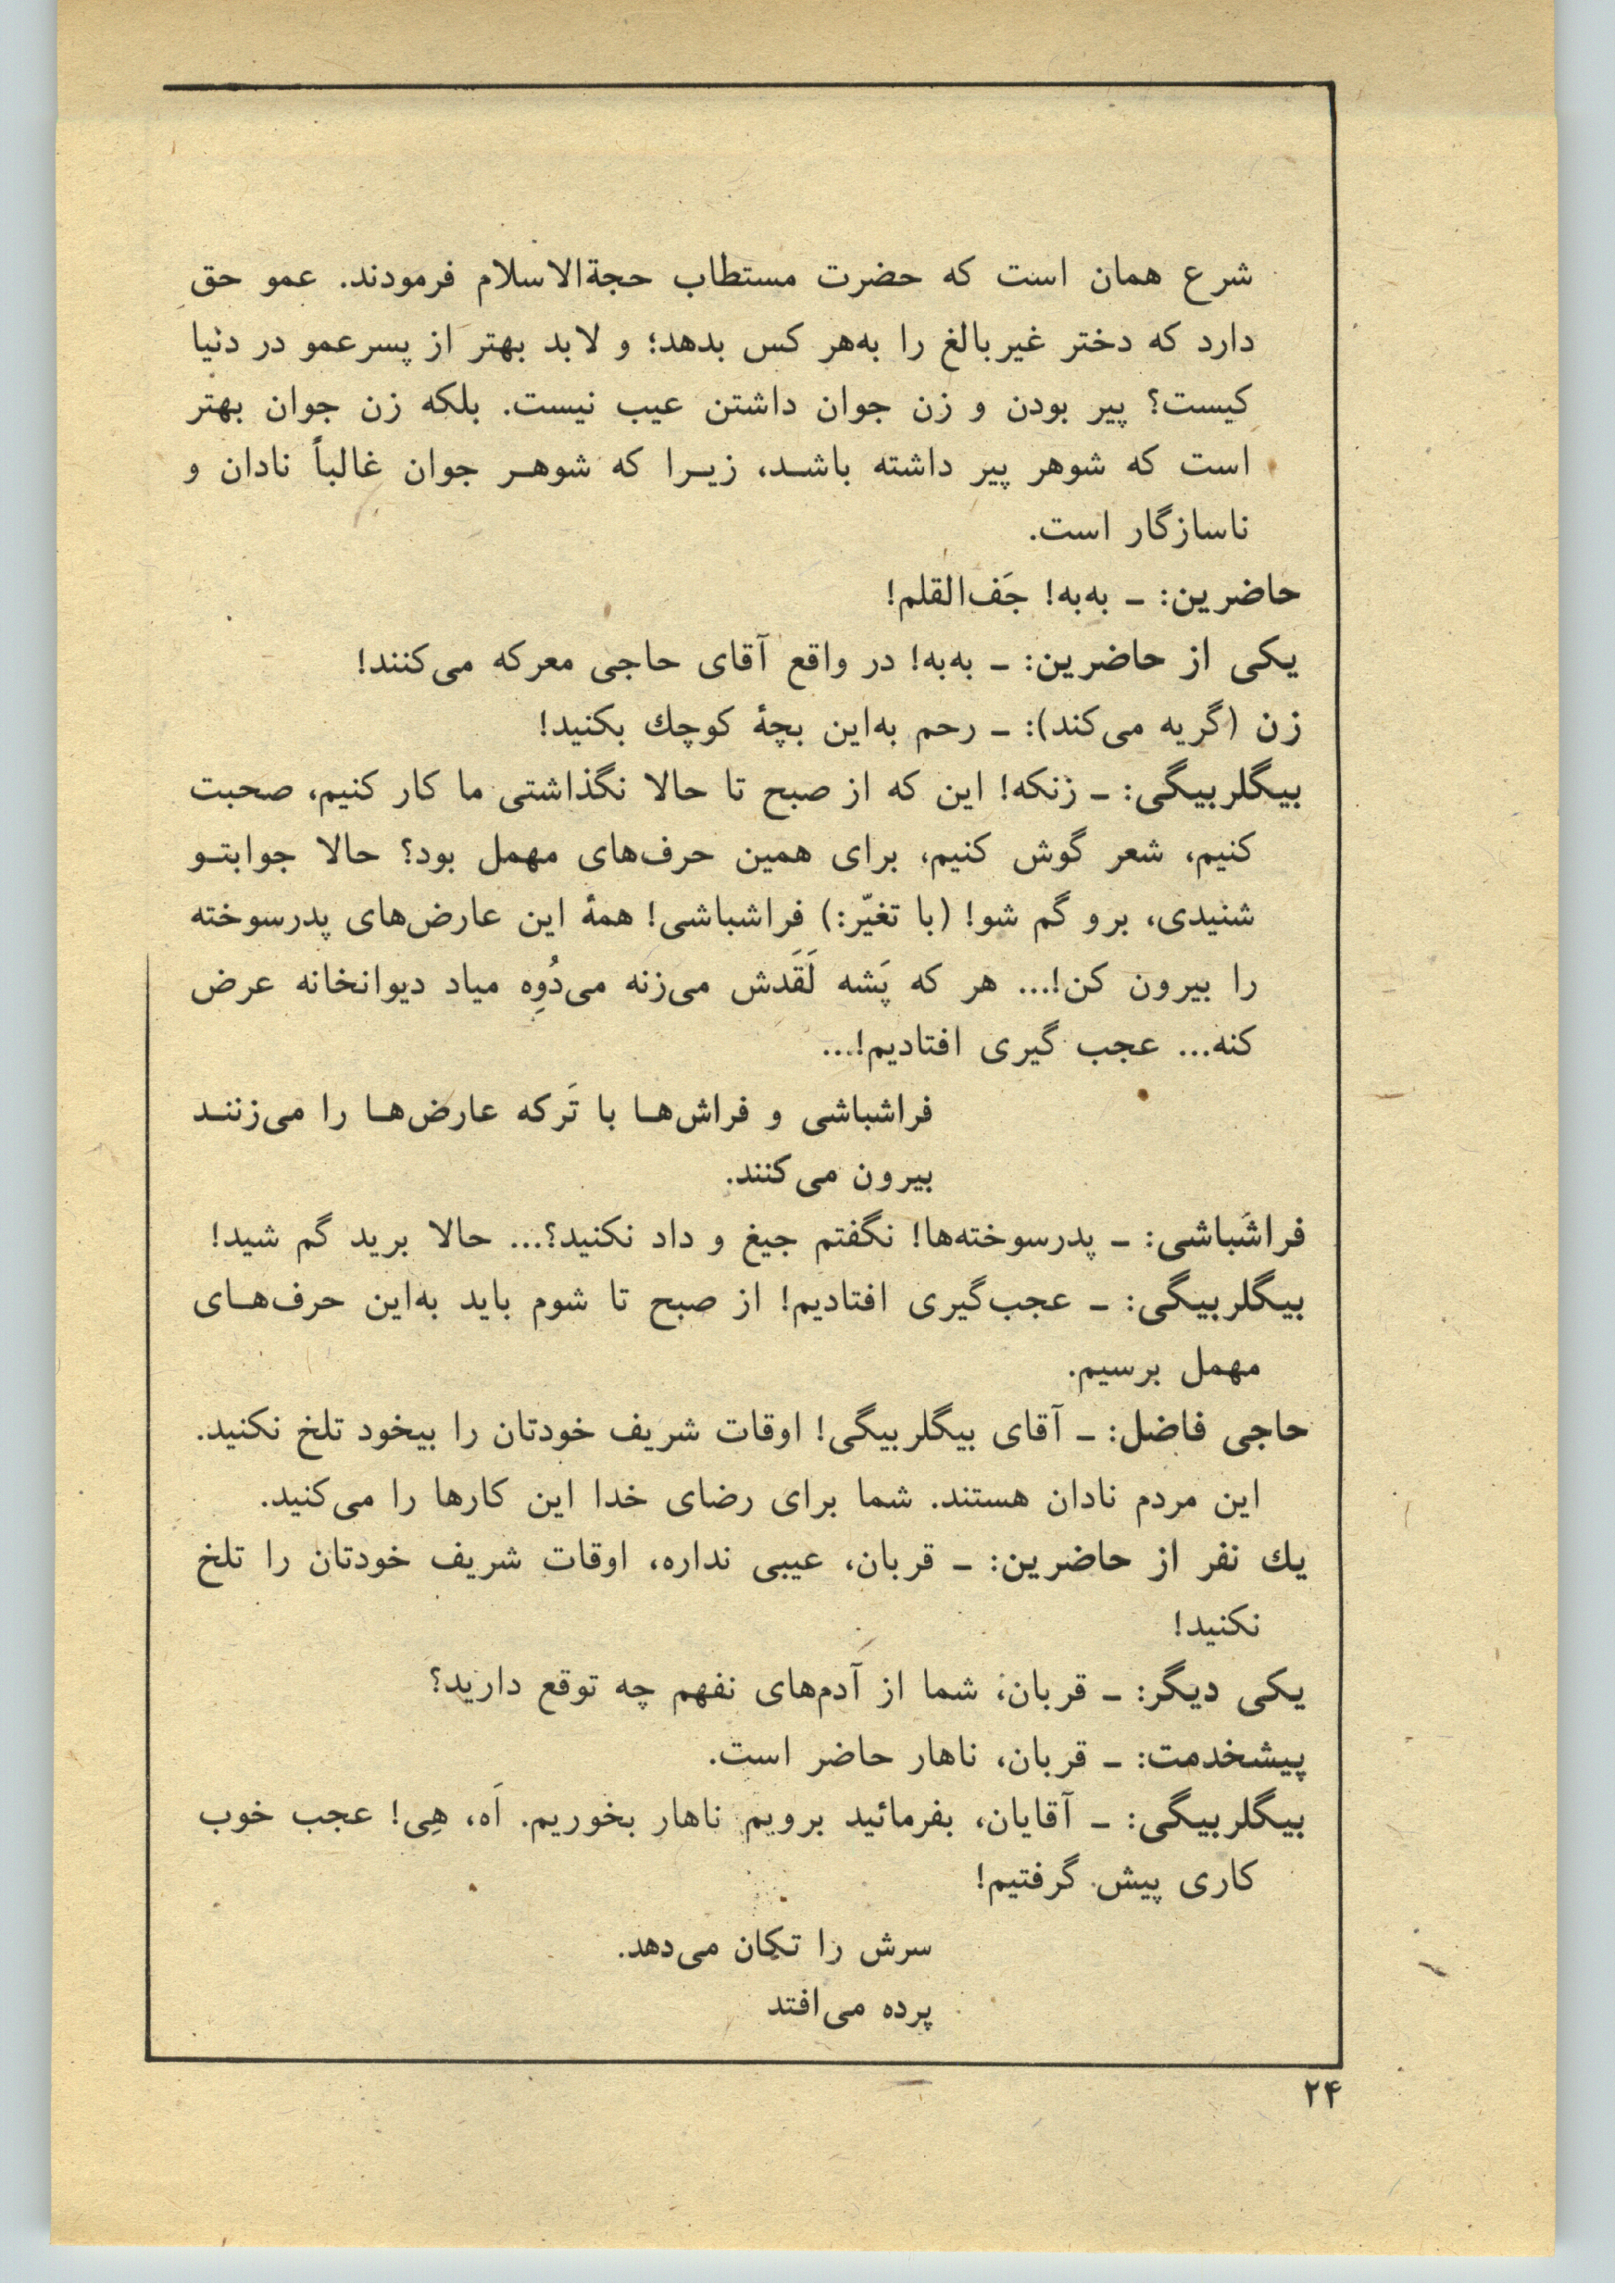 شرع همان است که حضرت مستطاب حجةالاسلام فرمودند. عمو حق
دارد که دختر غیربالغ را به‌هر کس بدهد؛ و لابد بهتر از پسرعمو در دنیا
کیست؟ پیر بودن و زن جوان داشتن عیب نیست. بلکه زن جوان بهتر
است که شوهر پیر داشته باشـد، زیـرا که شوهـر جوان غالباً نادان و
ناسازگار است.
حاضرین: ـ به‌به! جَف‌القلم!
یکی از حاضرین: ـ به‌به! در واقع آقای حاجی معرکه می‌کنند!
زن (گریه می‌کند): ـ رحم به‌این بچهٔ کوچك بکنید!
بیگلربیگی: ـ زنکه! این که از صبح تا حالا نگذاشتی ما کار کنیم، صحبت
کنیم، شعر گوش کنیم، برای همین حرف‌های مهمل بود؟ حالا جوابتـو
شنیدی، برو گم شو! (با تغیّر:) فراشباشی! همهٔ این عارض‌های پدرسوخته
را بیرون کن!... هر که پَشه لَقَدش می‌زنه می‌دُوِه میاد دیوانخانه عرض
کنه... عجب گیری افتادیم!...
فراشباشی و فراش‌هـا با تَرکه عارض‌هـا را می‌زننـد
بیرون می‌کنند.
فراشباشی: ـ پدرسوخته‌ها! نگفتم جیغ و داد نکنید؟... حالا برید گم شید!
بیگلربیگی: ـ عجب‌گیری افتادیم! از صبح تا شوم باید به‌این حرف‌هـای
مهمل برسیم.
حاجی فاضل: ـ آقای بیگلربیگی! اوقات شریف خودتان را بیخود تلخ نکنید.
این مردم نادان هستند. شما برای رضای خدا این کارها را می‌کنید.
یك نفر از حاضرین: ـ قربان، عیبی نداره، اوقات شریف خودتان را تلخ
نکنید!
یکی دیگر: ـ قربان، شما از آدم‌های نفهم چه توقع دارید؟
پیشخدمت: ـ قربان، ناهار حاضر است.
بیگلربیگی: ـ آقایان، بفرمائید برویم ناهار بخوریم. اَه، هِی! عجب خوب
کاری پیش گرفتیم!
سرش را تکان می‌دهد.
پرده می‌افتد
۲۴